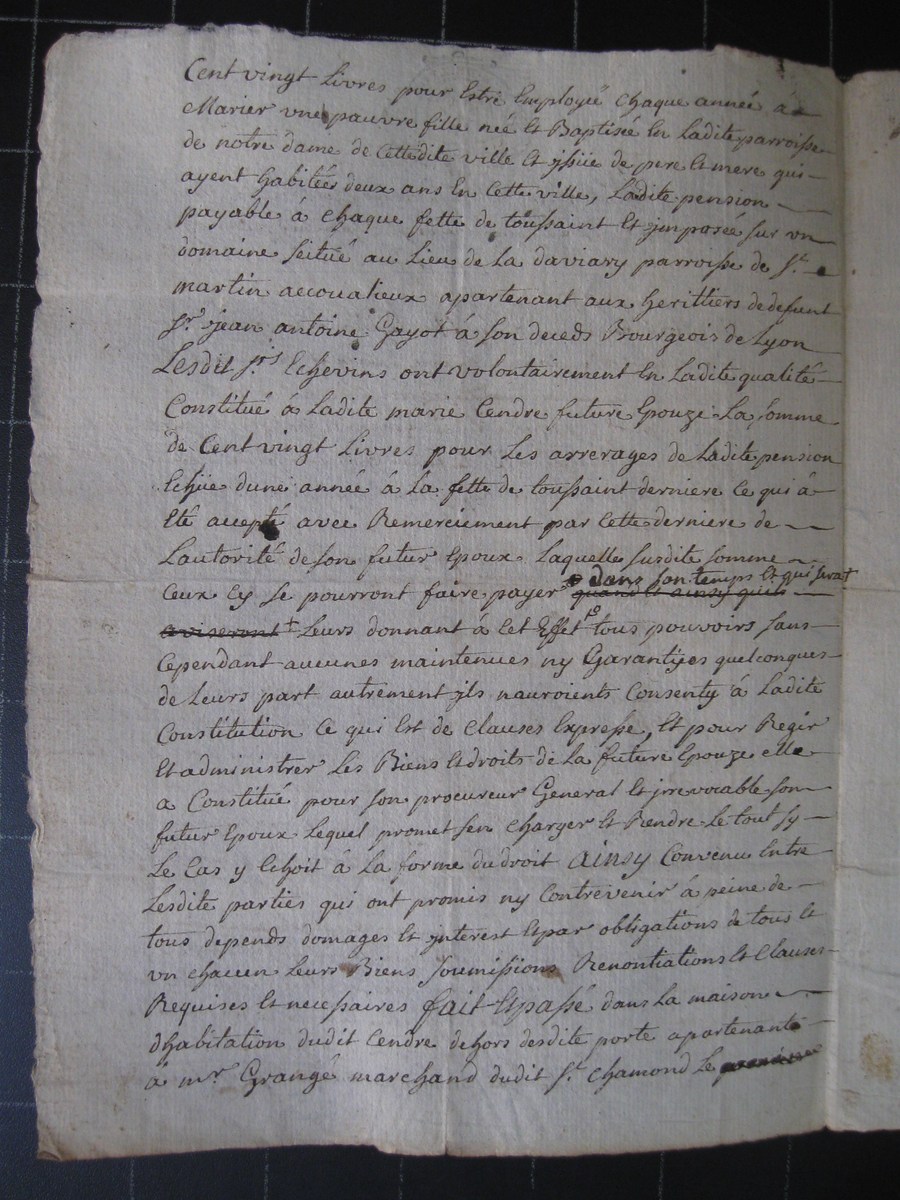 Cent vingt Livres pour Estre Employé chaque année à
Marier une pauvre fille née Et Baptisée En Ladite parroisse
de notre dame de Cettedite ville Et jssüe de pere Et mere qui
ayent habitées deux ans En Cette ville, Ladite pension
payable à chaque fette de toussaint Et jmposée sur un
domaine seitué au Lieu de La daviary parroisse de St
martin accoualieux apartenant aux heritiers de defunt
Sr jean antoine Gayot à son deceds Bourgeois de Lyon
Lesdit Srs Echevins ont volontairement En Ladite qualité
Constitué à Ladite marie Cendre future Epouze La somme
de Cent vingt Livres pour Les arrerages de Ladite pension
Echüe dune année à La fette de toussaint derniere Ce qui à
Eté accepté avec Remerciement par Cette derniere de
Lautorité de son futur Epoux Laquelle susdite somme
dans son temps Et qui sera+
Ceux Cy se pourront faire payer quand Et ainsy quils
aviseront + Leurs donnant à Cet Effet tous pouvoirs sans
Cependant aucunes maintenues ny Garantyes quelconques
de Leurs part autrement jls nauroients Consenty à Ladite
Constitution Ce qui Est de Clauses Expresse, Et pour Regir
Et administrer Les Biens Et droits de La future Epouze elle
a Constitué pour son procureur General Et jrrevocable son
futur Epoux Lequel promet sen charger Et Rendre Le tout sy
Le Cas y Echoit à La forme du droit ainsy Convenu Entre
Lesdite parties qui ont promis ny Contrevenir à peine de
tous depends domages Et jnterest Et par obligations de tous Et
un chacun Leurs Biens soumissions Renontiations Et Clauses
Requises Et necessaires fait Et passé dans La maison
dhabitation dudit Cendre dehors desdite porte apartenant
à mr Grangé marchand dudit St chamond Le